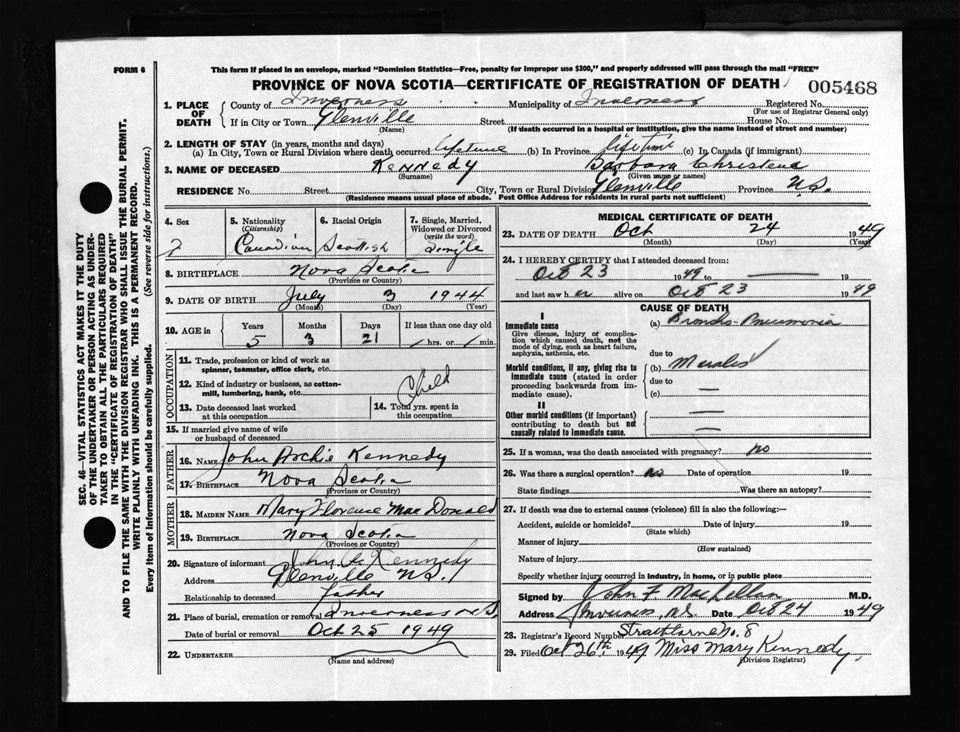 FORM 6
This form if placed in an envelope, marked "Dominion Statistics—Free, penalty for improper use $300," and properly addressed will pass through the mail "FREE"
PROVINCE OF NOVA SCOTIA—CERTIFICATE OF REGISTRATION OF DEATH
005468
SEC. 46—VITAL STATISTICS ACT MAKES IT THE DUTY
OF THE UNDERTAKER OR PERSON ACTING AS UNDER-
TAKER TO OBTAIN ALL THE PARTICULARS REQUIRED
IN THE "CERTIFICATE OF REGISTRATION OF DEATH"
AND TO FILE THE SAME WITH THE DIVISION REGISTRAR WHO SHALL ISSUE THE BURIAL PERMIT.
WRITE PLAINLY WITH UNFADING INK. THIS IS A PERMANENT RECORD.
Every item of information should be carefully supplied. (See reverse side for instructions.)
1. PLACE OF DEATH
County of Inverness Municipality of Inverness Registered No.
(For use of Registrar General only)
If in City or Town Glenville Street House No.
(Name) (If death occurred in a hospital or institution, give the name instead of street and number)
2. LENGTH OF STAY (in years, months and days)
(a) In City, Town or Rural Division where death occurred lifetime (b) In Province lifetime (c) In Canada (if immigrant)
3. NAME OF DECEASED Kennedy Barbara Christena
(Surname) (Given name or names)
RESIDENCE No. Street City, Town or Rural Division Glenville Province N.S.
(Residence means usual place of abode. Post Office Address for residents in rural parts not sufficient)
4. Sex
5. Nationality (Citizenship)
6. Racial Origin
7. Single, Married, Widowed or Divorced (write the word)
Canadian Scottish Single
8. BIRTHPLACE Nova Scotia
(Province or Country)
9. DATE OF BIRTH July 3 1944
(Month) (Day) (Year)
10. AGE in Years Months Days If less than one day old
5 3 21 hrs. or min.
OCCUPATION
11. Trade, profession or kind of work as
spinner, teamster, office clerk, etc.
12. Kind of industry or business, as cotton-
mill, lumbering, bank, etc.
Child
13. Date deceased last worked
at this occupation
14. Total yrs. spent in
this occupation
15. If married give name of wife
or husband of deceased
FATHER
16. NAME John Archie Kennedy
17. BIRTHPLACE Nova Scotia
(Province or Country)
MOTHER
18. MAIDEN NAME Mary Florence MacDonald
19. BIRTHPLACE Nova Scotia
(Province or Country)
20. Signature of informant John A Kennedy
Address Glenville N.S.
Relationship to deceased father
21. Place of burial, cremation or removal Inverness N.S.
Date of burial or removal Oct 25 1949
22. UNDERTAKER
(Name and address)
MEDICAL CERTIFICATE OF DEATH
23. DATE OF DEATH Oct 24 1949
(Month) (Day) (Year)
24. I HEREBY CERTIFY that I attended deceased from:
Oct 23 1949 to 19
and last saw her alive on Oct 23 1949
CAUSE OF DEATH
I
Immediate cause
Give disease, injury or complica-
tion which caused death, not the
mode of dying, such as heart failure,
asphyxia, asthenia, etc.
(a) Broncho-Pneumonia
due to
Morbid conditions, if any, giving rise to
immediate cause (stated in order
proceeding backwards from im-
mediate cause).
(b) Measles
due to
(c)
II
Other morbid conditions (if important)
contributing to death but not
causally related to immediate cause.
25. If a woman, was the death associated with pregnancy? no
26. Was there a surgical operation? no Date of operation 19
State findings Was there an autopsy?
27. If death was due to external causes (violence) fill in also the following:—
Accident, suicide or homicide? Date of injury 19
(State which)
Manner of injury
(How sustained)
Nature of injury
Specify whether injury occurred in industry, in home, or in public place
Signed by John F MacLellan M.D.
Address Inverness, N.S. Date Oct 24 1949
28. Registrar's Record Number Strathlorne No. 8
29. Filed Oct 26th 1949 Miss Mary Kennedy
(Division Registrar)